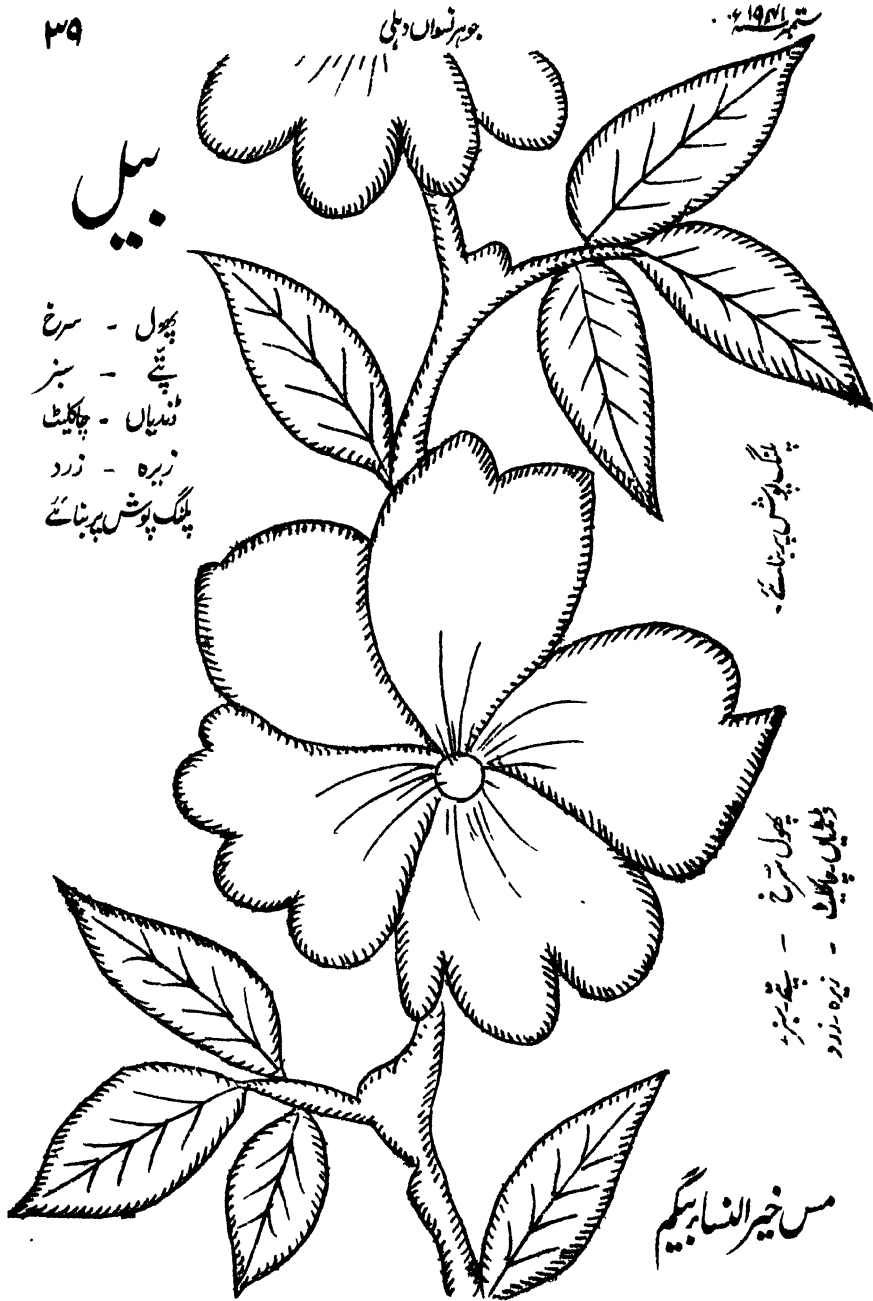 ستمبر ۱۹۴۱ء
جوہر نسواں دہلی
۳۹
بیل
پھول - سرخ
پتّے - سبز
ڈنڈیاں - چاکلیٹ
زیرہ - زرد
پلنگ پوش پر بنائیے
پلنگ پوش پر بنائیے۔
پھول سُرخ - پتّے سبز
ڈنڈیاں چاکلیٹ - زیرہ - زرد
مس خیر النساء بیگم